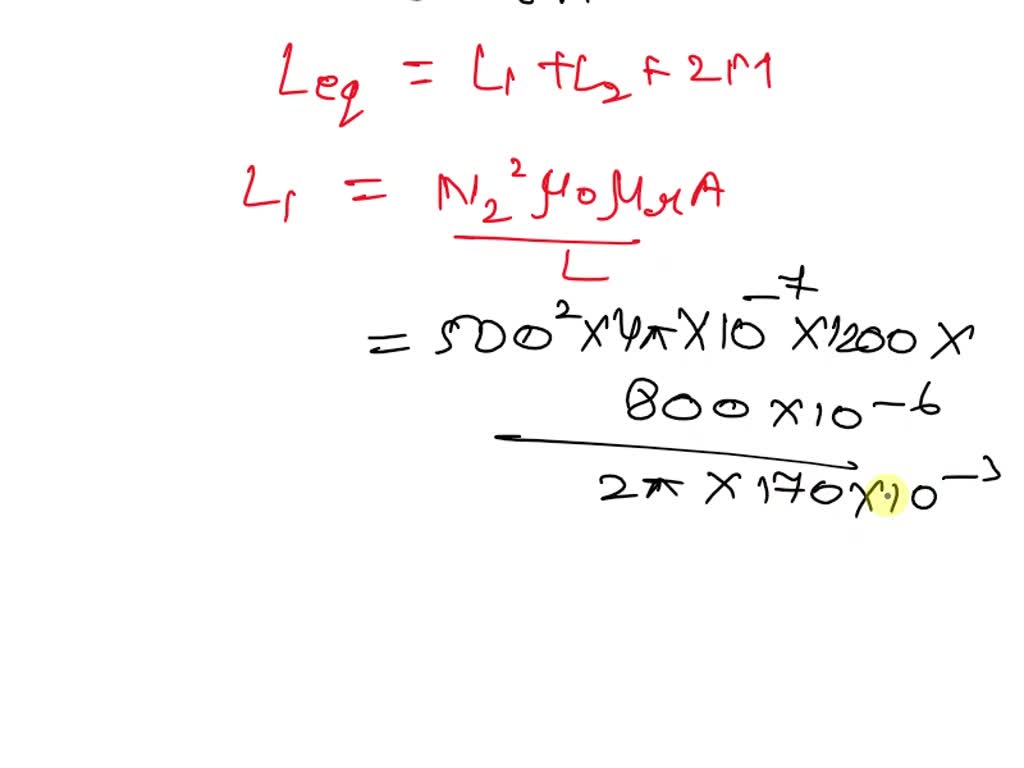 Leq = L1 + L2 + 2M
L1 = N2² μ0 μr A
L
= 500² × 4π × 10⁻⁷ × 1200 ×
800 × 10⁻⁶
2π × 170 × 10⁻³